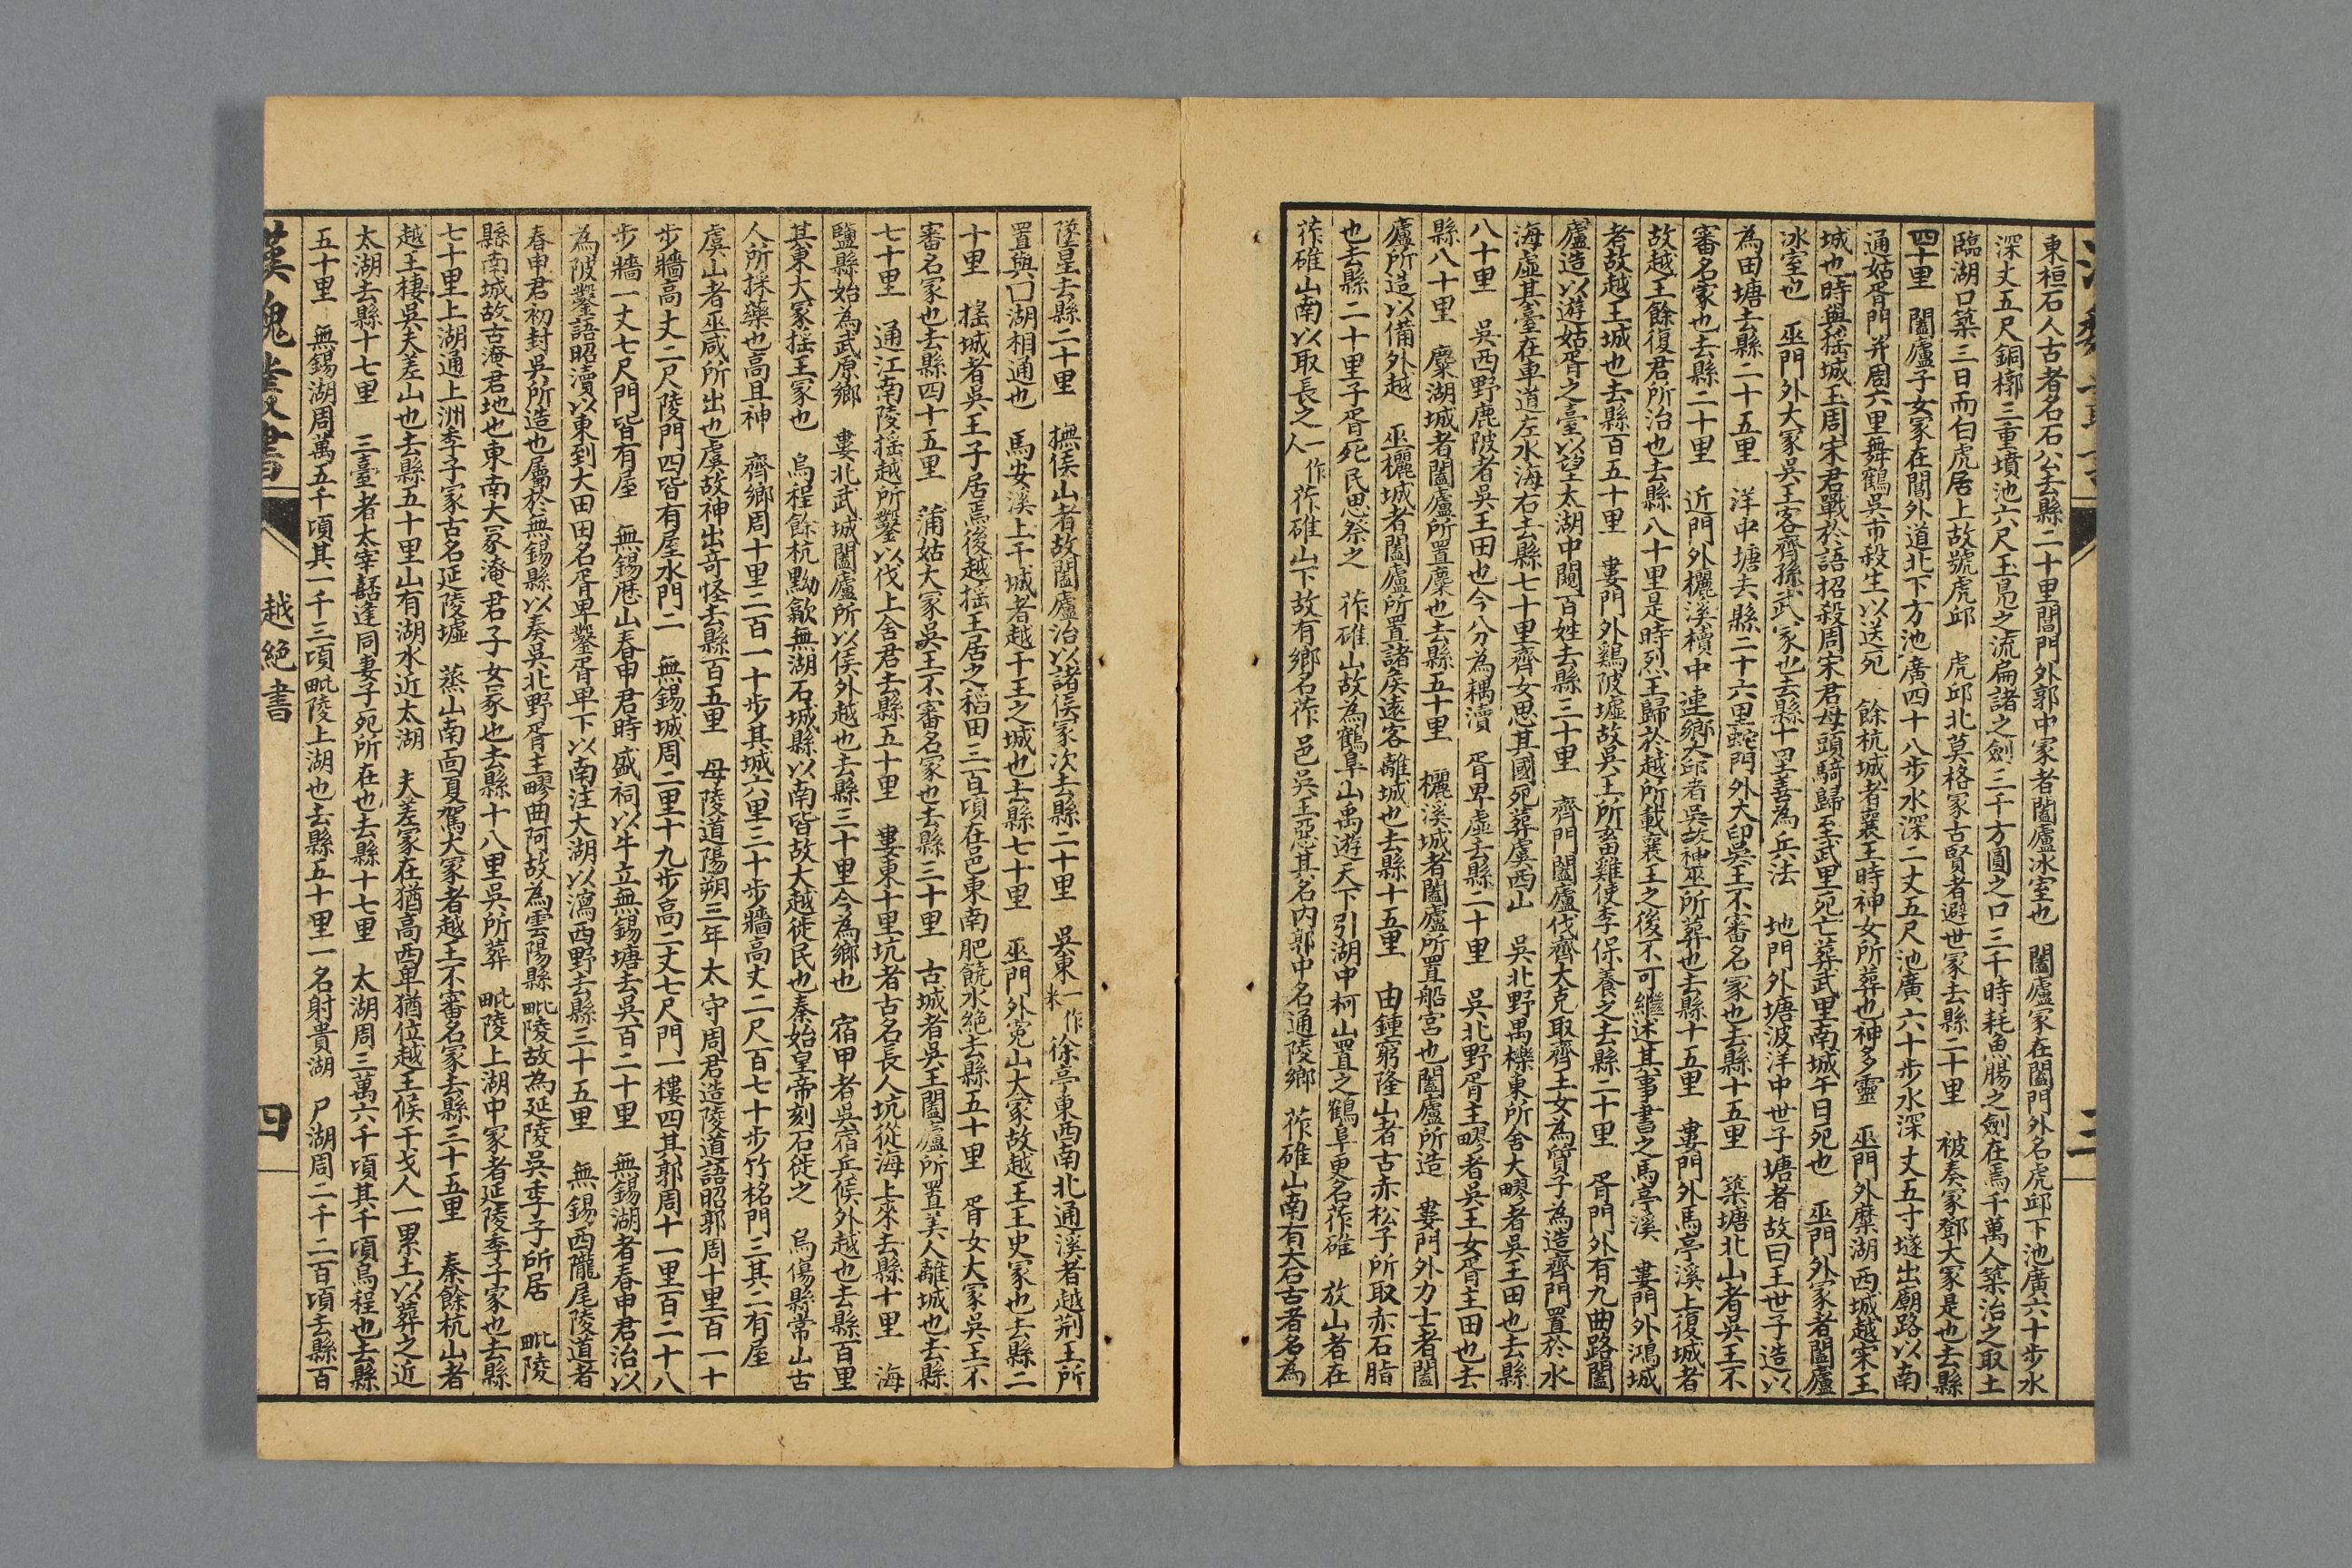 東桓石人古者名石公去縣二十里閶門外郭中冢者闔廬冰室也　闔廬冢在閶門外名虎邱下池廣六十步水
深丈五尺銅槨三重墳池六尺玉鳧之流扁諸之劍三千方圓之口三千時耗魚腸之劍在焉千萬人築治之取土
臨湖口築三日而白虎居上故號虎邱　虎邱北莫格冢古賢者避世冢去縣二十里　被秦冢鄧大冢是也去縣
四十里　闔廬子女冢在閶外道北下方池廣四十八步水深二丈五尺池廣六十步水深丈五寸墜出廟路以南
通姑胥門并周六里舞鶴吳市殺生以送死　餘杭城者襄王時神女所葬也神多靈　巫門外糜湖西城越宋王
城也時與搖城王周宋君戰於語招殺周宋君毋頭騎歸至武里死亡葬武里南城午日死也　巫門外冢者闔廬
冰室也　巫門外大冢吳王客齊孫武冢也去縣十里善為兵法　地門外塘波洋中世子塘者故曰王世子造以
為田塘去縣二十五里　洋中塘去縣二十六里蛇門外大邱吳王不審名冢也去縣十五里　築塘北山者吳王不
審名冢也去縣二十里　近門外欐溪櫝中連鄉大邱者吳故神巫所葬也去縣十五里　婁門外馬亭溪上復城者
故越王餘復君所治也去縣八十里是時烈王歸於越所載襄王之後不可繼述其事書之馬亭溪　婁門外鴻城
者故越王城也去縣百五十里　婁門外雞陂墟故吳王所畜雞使李保養之去縣二十里　胥門外有九曲路闔
廬造以遊姑胥之臺以望太湖中闚百姓去縣三十里　齊門闔廬伐齊大克取齊王女為質子為造齊門置於水
海虛其臺在車道左水海右去縣七十里齊女思其國死葬虞西山　吳北野禺櫟東所舍大疁者吳王田也去縣
八十里　吳西野鹿陂者吳王田也今分為耦瀆　胥卑虛去縣二十里　吳北野胥主疁者吳王女胥主田也去
縣八十里　麋湖城者闔廬所置麋也去縣五十里　欐溪城者闔廬所置船宮也闔廬所造　婁門外力士者闔
廬所造以備外越　巫欐城者闔廬所置諸侯遠客離城也去縣十五里　由鍾窮隆山者古赤松子所取赤石脂
也去縣二十里子胥死民思祭之　莋碓山故為鶴阜山禹遊天下引湖中柯山置之鶴阜更名莋碓　放山者在
莋碓山南以取長之一作人莋碓山下故有鄉名莋邑吳王惡其名內郭中名通陵鄉　莋碓山南有大石古者名為
墜星去縣二十里　撫侯山者故闔廬治以諸侯冢次去縣二十里　吳東一作末徐亭東西南北通溪者越荊王所
置與囗湖相通也　馬安溪上干城者越干王之城也去縣七十里　巫門外冤山大冢故越王王史冢也去縣二
十里　搖城者吳王子居焉後越搖王居之稻田三百頃在邑東南肥饒水絕去縣五十里　胥女大冢吳王不
審名冢也去縣四十五里　蒲姑大冢吳王不審名冢也去縣三十里　古城者吳王闔廬所置美人離城也去縣
七十里　通江南陵搖越所鑿以伐上舍君去縣五十里　婁東十里坑者古名長人坑從海上來去縣十里　海
鹽縣始為武原鄉　婁北武城闔廬所以候外越也去縣三十里今為鄉也　宿甲者吳宿兵候外越也去縣百里
其東大冢搖王冢也　烏程餘杭黝歙無湖石城縣以南皆故大越徙民也秦始皇帝刻石徙之　烏傷縣常山古
人所採藥也高且神　齊鄉周十里二百一十步其城六里三十步牆高丈二尺百七十步竹格門三其二有屋
虞山者巫咸所出也虞故神出奇怪去縣百五里　母陵道陽朔三年太守周君造陵道語昭郭周十里百一十
步牆高丈二尺陵門四皆有屋水門二　無錫城周二里十九步高二丈七尺門一樓四其郭周十一里百二十八
步牆一丈七尺門皆有屋　無錫歷山春申君時盛祠以牛立無錫塘去吳百二十里　無錫湖者春申君治以
為陂鑿語昭瀆以東到大田田名胥卑鑿胥卑下以南注大湖以瀉西野去縣三十五里　無錫西龍尾陵道者
春申君初封吳所造也屬於無錫縣以奏吳北野胥主疁曲阿故為雲陽縣毗陵故為延陵吳季子所居　毗陵
縣南城故古淹君地也東南大冢淹君子女冢也去縣十八里吳所葬　毗陵上湖中冢者延陵季子冢也去縣
七十里上湖通上洲季子冢古名延陵墟　蒸山南面夏駕大冢者越王不審名冢去縣三十五里　秦餘杭山者
越王棲吳夫差山也去縣五十里山有湖水近太湖　夫差冢在猶高西卑猶位越王候干戈人一累土以葬之近
太湖去縣十七里　三臺者太宰嚭逢同妻子死所在也去縣十七里　太湖周三萬六千頃其千頃烏程也去縣
五十里　無錫湖周萬五千頃其一千三頃毗陵上湖也去縣五十里一名射貴湖　尸湖周二千二百頃去縣百
漢魏叢書　越絕書　四